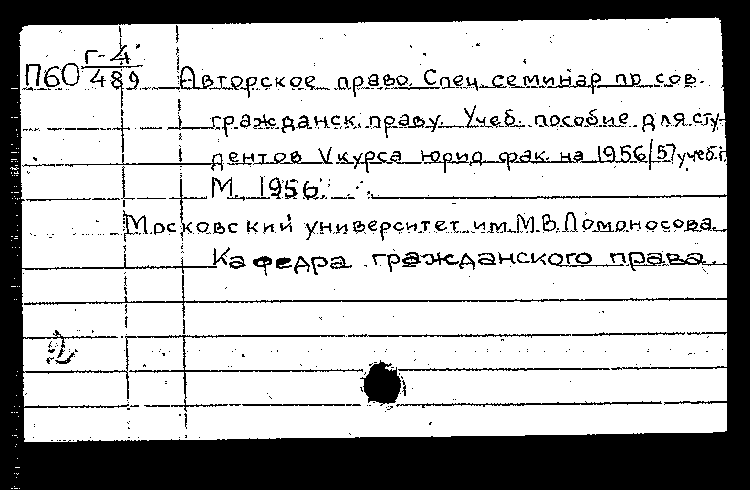 П60 Г-4
489 Авторское право. Спец. семинар по сов.
гражданск. праву. Учеб. пособие для сту-
дентов V курса юрид. фак. на 1956/57 учеб.г.
М. 1956.
Московский университет им. М.В. Ломоносова.
Кафедра гражданского права.
2